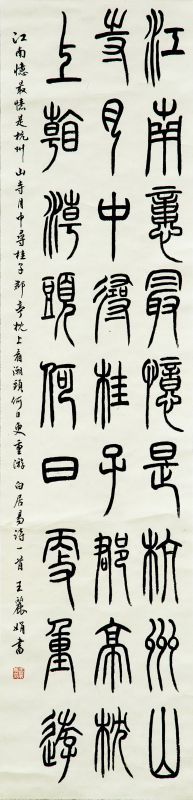 江南憶最憶是杭州山
寺月中尋桂子郡亭枕
上看潮頭何日更重遊
江南憶最憶是杭州 山寺月中尋桂子郡亭枕上看潮頭何日更重游 白居易詩一首 王麗娟書